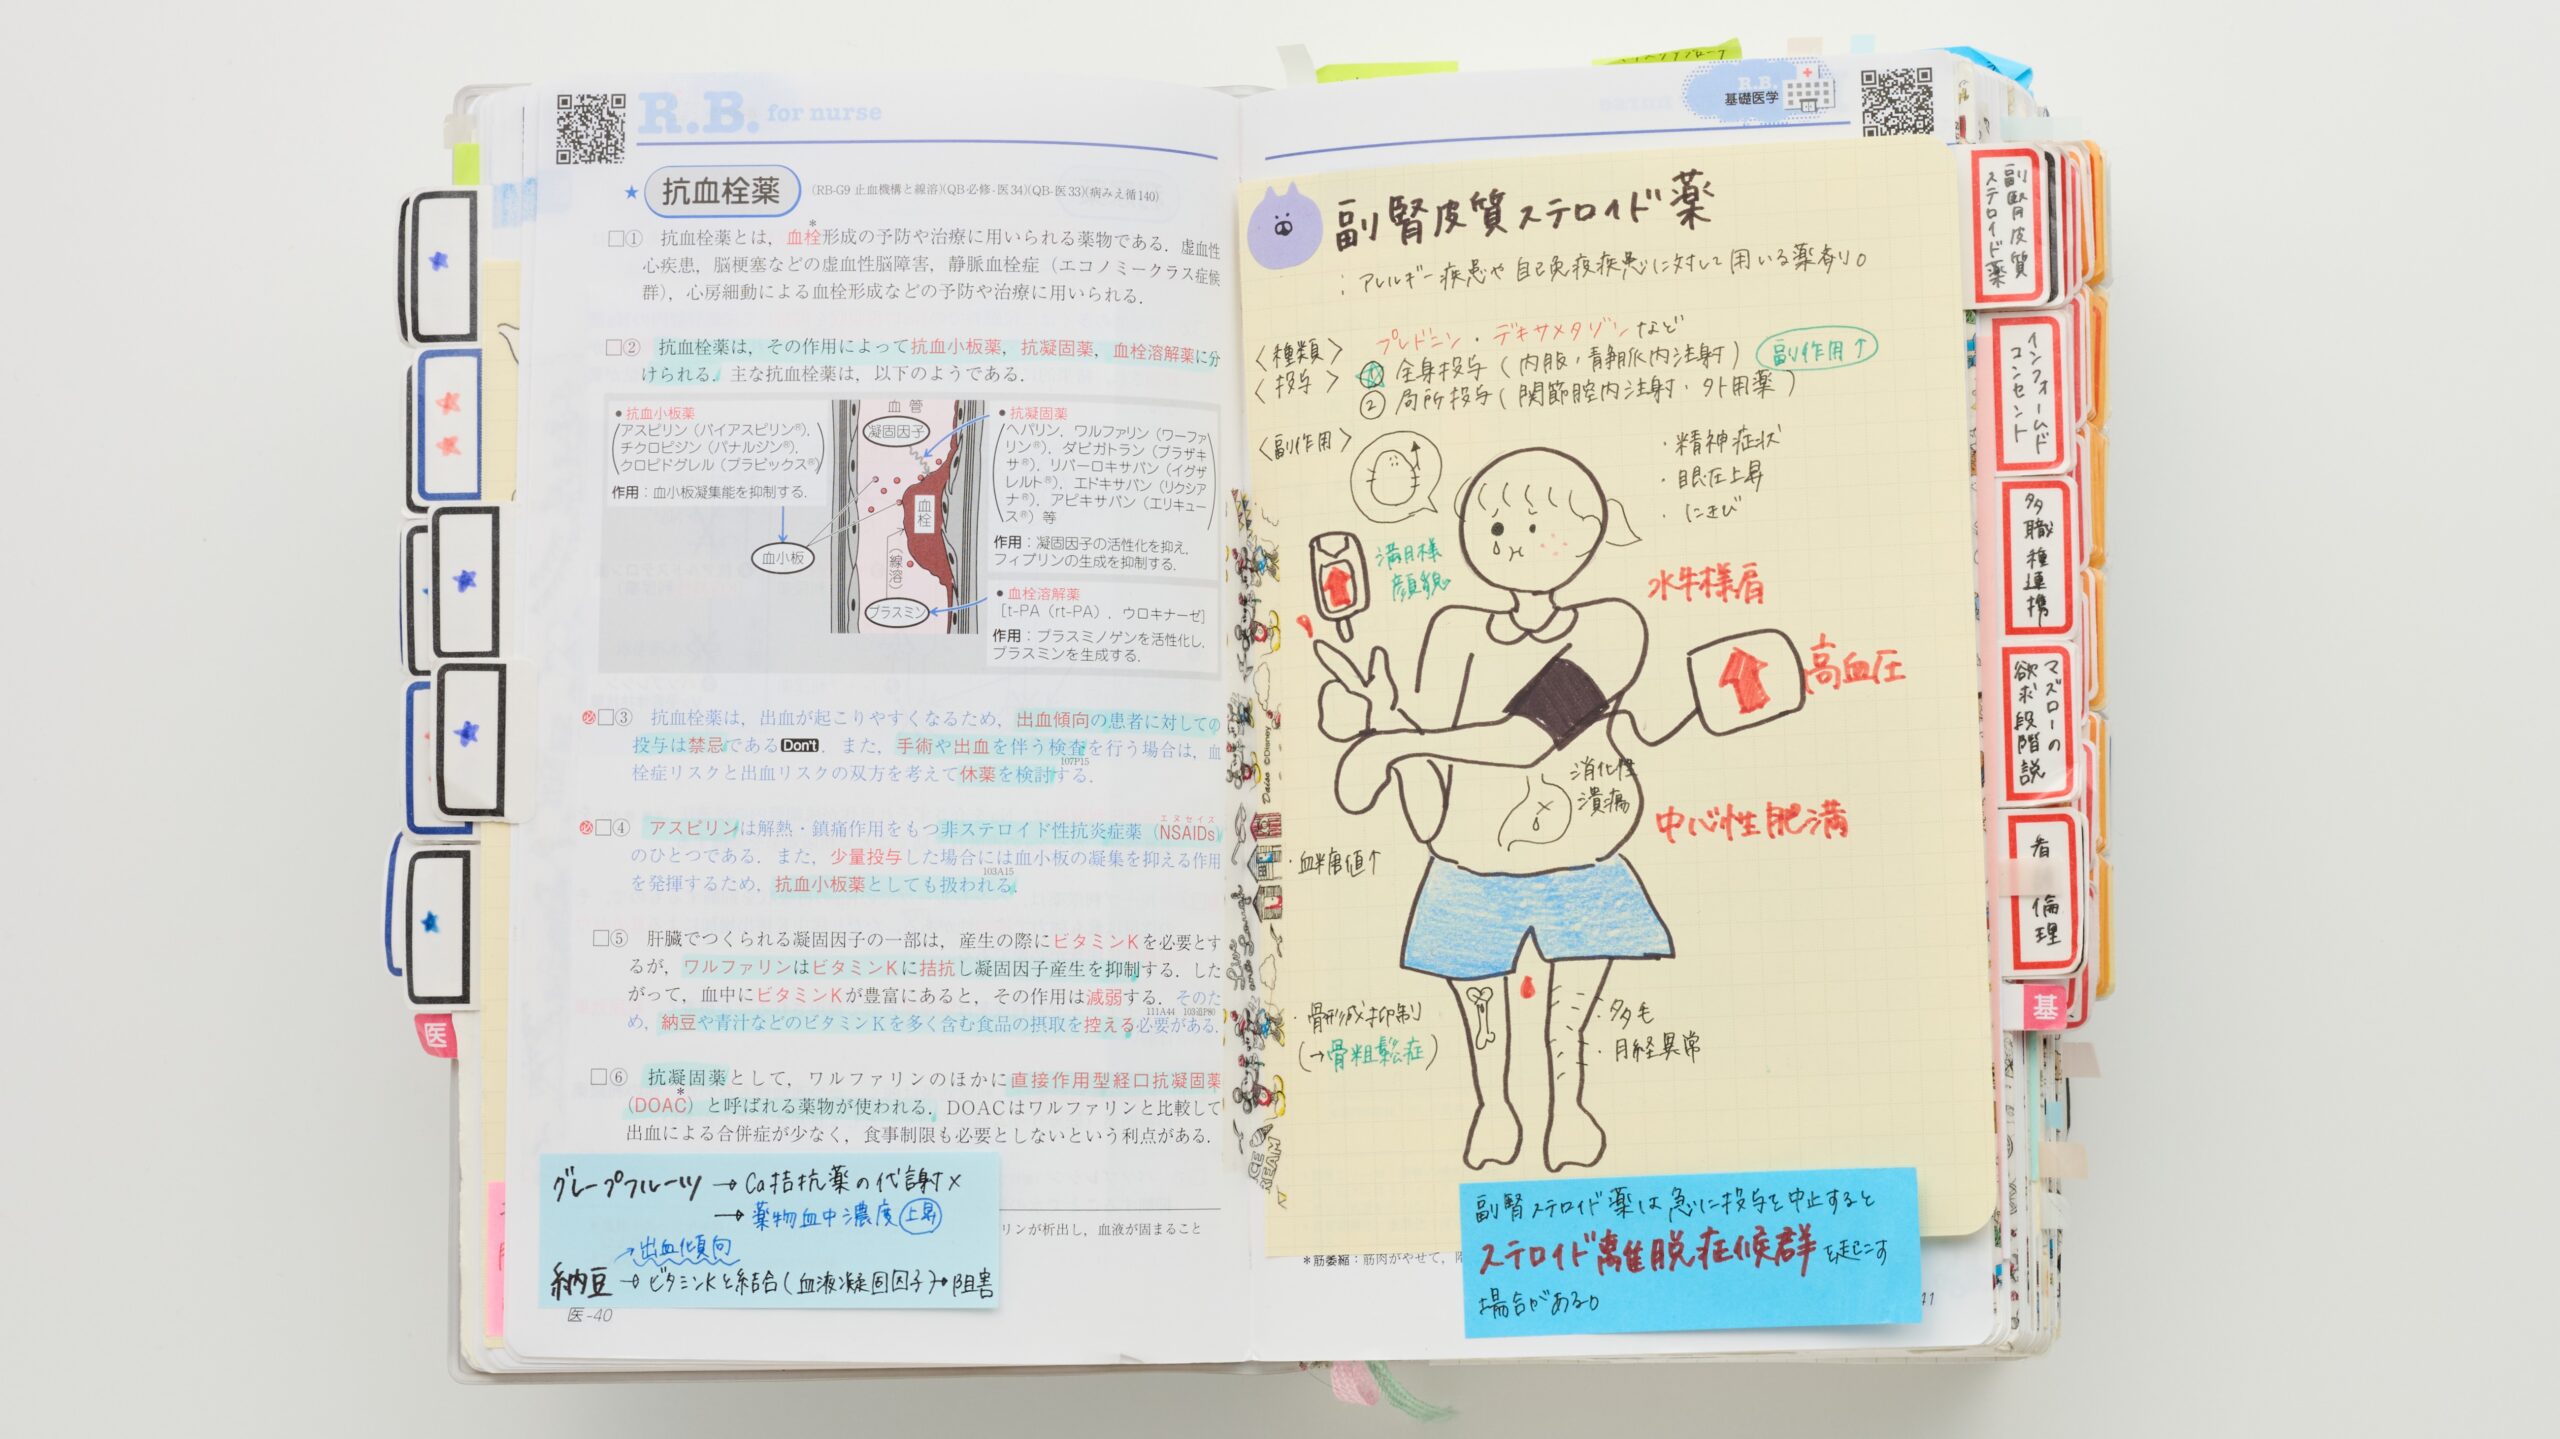 R.B. for nurse
★ 抗血栓薬 (RB-G9 止血機構と線溶)(QB必修-医34)(QB-医33)(病みえ循140)
□① 抗血栓薬とは，血栓*形成の予防や治療に用いられる薬物である．虚血性
心疾患，脳梗塞などの虚血性脳障害，静脈血栓症（エコノミークラス症候
群），心房細動による血栓形成などの予防や治療に用いられる．
□② 抗血栓薬は，その作用によって抗血小板薬，抗凝固薬，血栓溶解薬に分
けられる．主な抗血栓薬は，以下のようである．
● 抗血小板薬
アスピリン（バイアスピリン®），
チクロピジン（パナルジン®），
クロピドグレル（プラビックス®）
作用：血小板凝集能を抑制する．
血小板
血管
凝固因子
血栓
（線溶）
プラスミン
● 抗凝固薬
ヘパリン，ワルファリン（ワーファ
リン®），ダビガトラン（プラザキ
サ®），リバーロキサバン（イグザ
レルト®），エドキサバン（リクシア
ナ®），アピキサバン（エリキュー
ス®）等
作用：凝固因子の活性化を抑え，
フィブリンの生成を抑制する．
● 血栓溶解薬
［t-PA（rt-PA），ウロキナーゼ］
作用：プラスミノゲンを活性化し，
プラスミンを生成する．
□③ 抗血栓薬は，出血が起こりやすくなるため，出血傾向の患者に対しての
投与は禁忌であるDon't．また，手術や出血を伴う検査を行う場合は，血
栓症リスクと出血リスクの双方を考えて休薬を検討する．
107P15
□④ アスピリンは解熱・鎮痛作用をもつ非ステロイド性抗炎症薬（NSAIDs）
エヌセイズ
のひとつである．また，少量投与した場合には血小板の凝集を抑える作用
を発揮するため，抗血小板薬としても扱われる．
103A15
□⑤ 肝臓でつくられる凝固因子の一部は，産生の際にビタミンKを必要とす
るが，ワルファリンはビタミンKに拮抗し凝固因子産生を抑制する．した
がって，血中にビタミンKが豊富にあると，その作用は減弱する．そのた
め，納豆や青汁などのビタミンKを多く含む食品の摂取を控える必要がある．
111A44 103追P80
□⑥ 抗凝固薬として，ワルファリンのほかに直接作用型経口抗凝固薬
（DOAC*）と呼ばれる薬物が使われる．DOACはワルファリンと比較して
出血による合併症が少なく，食事制限も必要としないという利点がある．
グレープフルーツ → Ca拮抗薬の代謝×
→ 薬物血中濃度上昇
→出血傾向
納豆 → ビタミンKと結合(血液凝固因子)→阻害
リンが析出し，血液が固まること
医-40
医
R.B.
基礎医学
副腎皮質ステロイド薬
：アレルギー疾患や自己免疫疾患に対して用いる薬剤。
〈種類〉 プレドニン・デキサメタゾンなど
〈投与〉 ① 全身投与（内服・静脈内注射） 副作用↑
② 局所投与（関節腔内注射・外用薬）
〈副作用〉
・精神症状
・眼圧上昇
・にきび
満月様
顔貌
水牛様肩
高血圧
消化性
潰瘍
中心性肥満
・血糖値↑
・骨形成抑制
(→骨粗鬆症)
・多毛
・月経異常
副腎ステロイド薬は急に投与を中止すると
ステロイド離脱症候群を起こす
場合がある。
*筋萎縮：筋肉がやせて，
41
Daiso ©Disney
ICE
CREAM
副腎皮質
ステロイド薬
インフォームド
コンセント
多職種連携
マズローの
欲求段階説
倫理
基